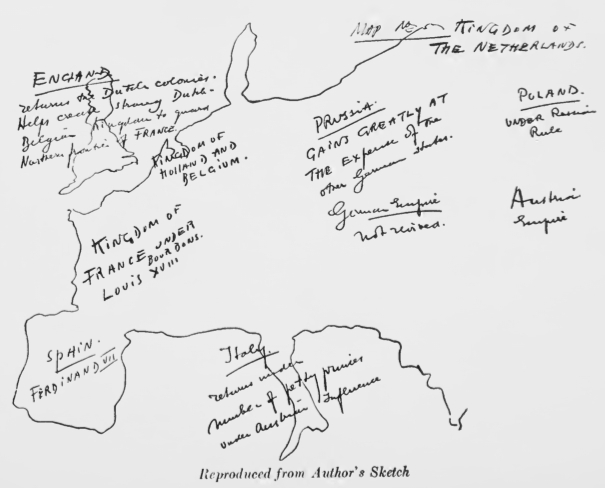 MAP NO. KINGDOM OF
THE NETHERLANDS.
ENGLAND
returns the Dutch colonies.
Helps create strong Dutch-
Belgian Kingdom to guard
Northern frontier of FRANCE.
KINGDOM OF
HOLLAND AND
BELGIUM.
PRUSSIA.
GAINS GREATLY AT
THE Expense of the
other German States.
German Empire
not revived.
POLAND.
UNDER Russian
Rule
Austrian
Empire
KINGDOM OF
FRANCE UNDER
BOURBONS.
LOUIS XVIII
SPAIN.
FERDINAND VII
Italy.
returns under
number of petty princes
under Austrian Influence
Reproduced from Author's Sketch